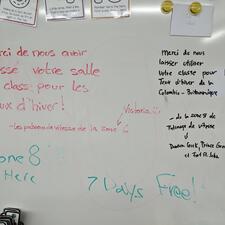 rci de nous avoir
ssé votre salle
classe pour les
ux d'hiver!
Victoria
- les patineurs de vitesse de la zone 6
one 8
Here
7 Days Free!
Merci de nous
laisser utiliser
votre classe pour
Jeux d'hiver de la
Colombie - Britannique
- de la zone 8 de
Patinage de vitesse
Dawson Creek, Prince George
et Fort St. John